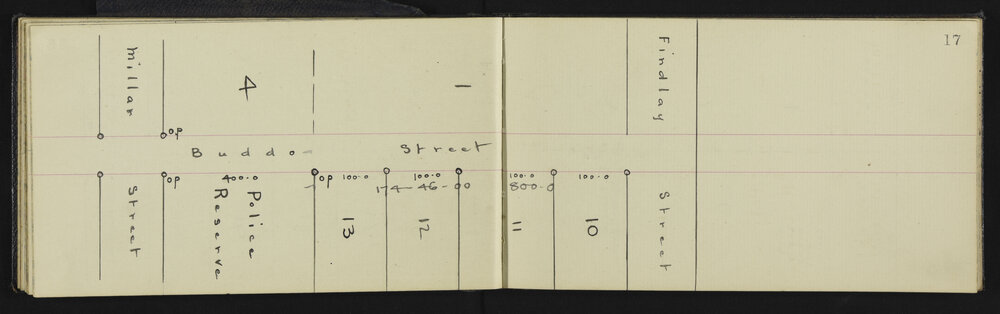 17
Millar
4
1
Findlay
op
Buddo
Street
op
400.0
op
100.0
100.0
100.0
100.0
174-46-00
800.0
Street
Police
Reserve
13
12
11
10
Street